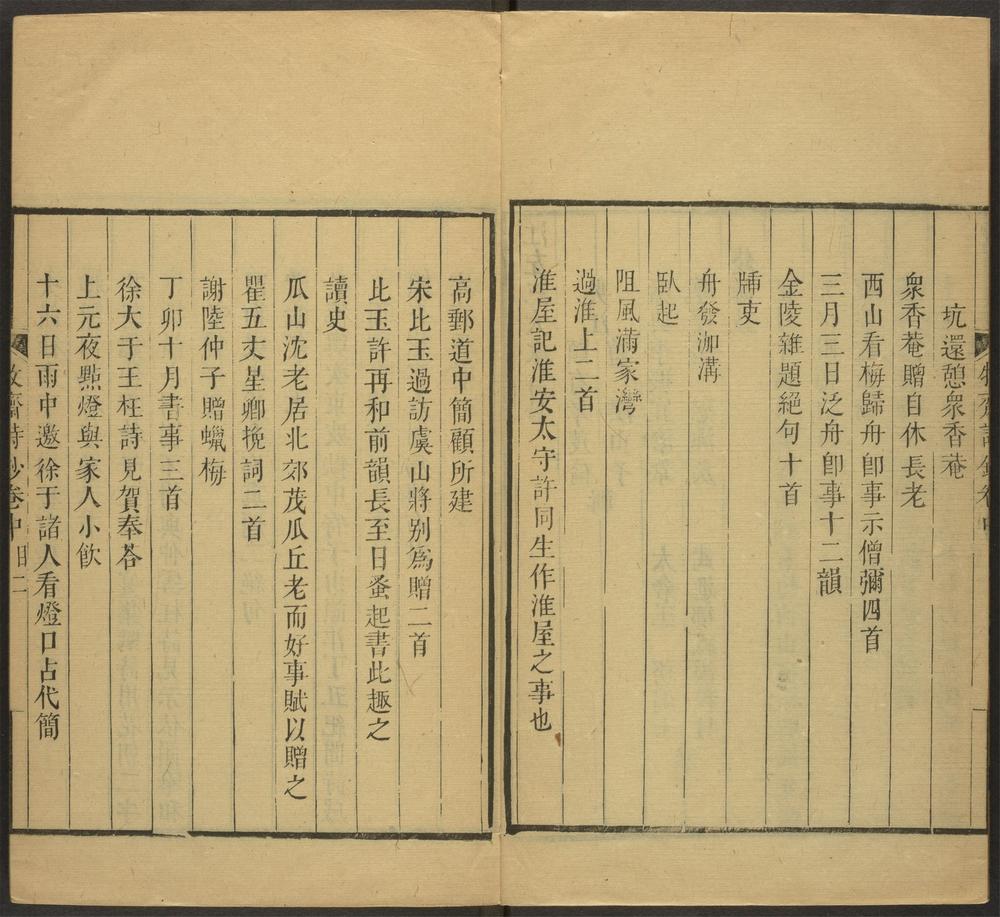 坑還憩衆香菴
衆香菴贈自休長老
西山看梅歸舟卽事示僧彌四首
三月三日泛舟卽事十二韻
金陵雜題絕句十首
牐吏
舟發泇溝
臥起
阻風滿家灣
過淮上二首
淮屋記淮安太守許同生作淮屋之事也
高郵道中簡顧所建
朱比玉過訪虞山將别爲贈二首
比玉許再和前韻長至日蚤起書此趣之
讀史
瓜山沈老居北郊茂瓜丘老而好事賦以贈之
瞿五丈星卿挽詞二首
謝陸仲子贈蠟梅
丁卯十月書事三首
徐大于王枉詩見賀奉荅
上元夜㸃燈與家人小飮
十六日雨中邀徐于諸人看燈口占代簡
齋詩鈔卷中 目二